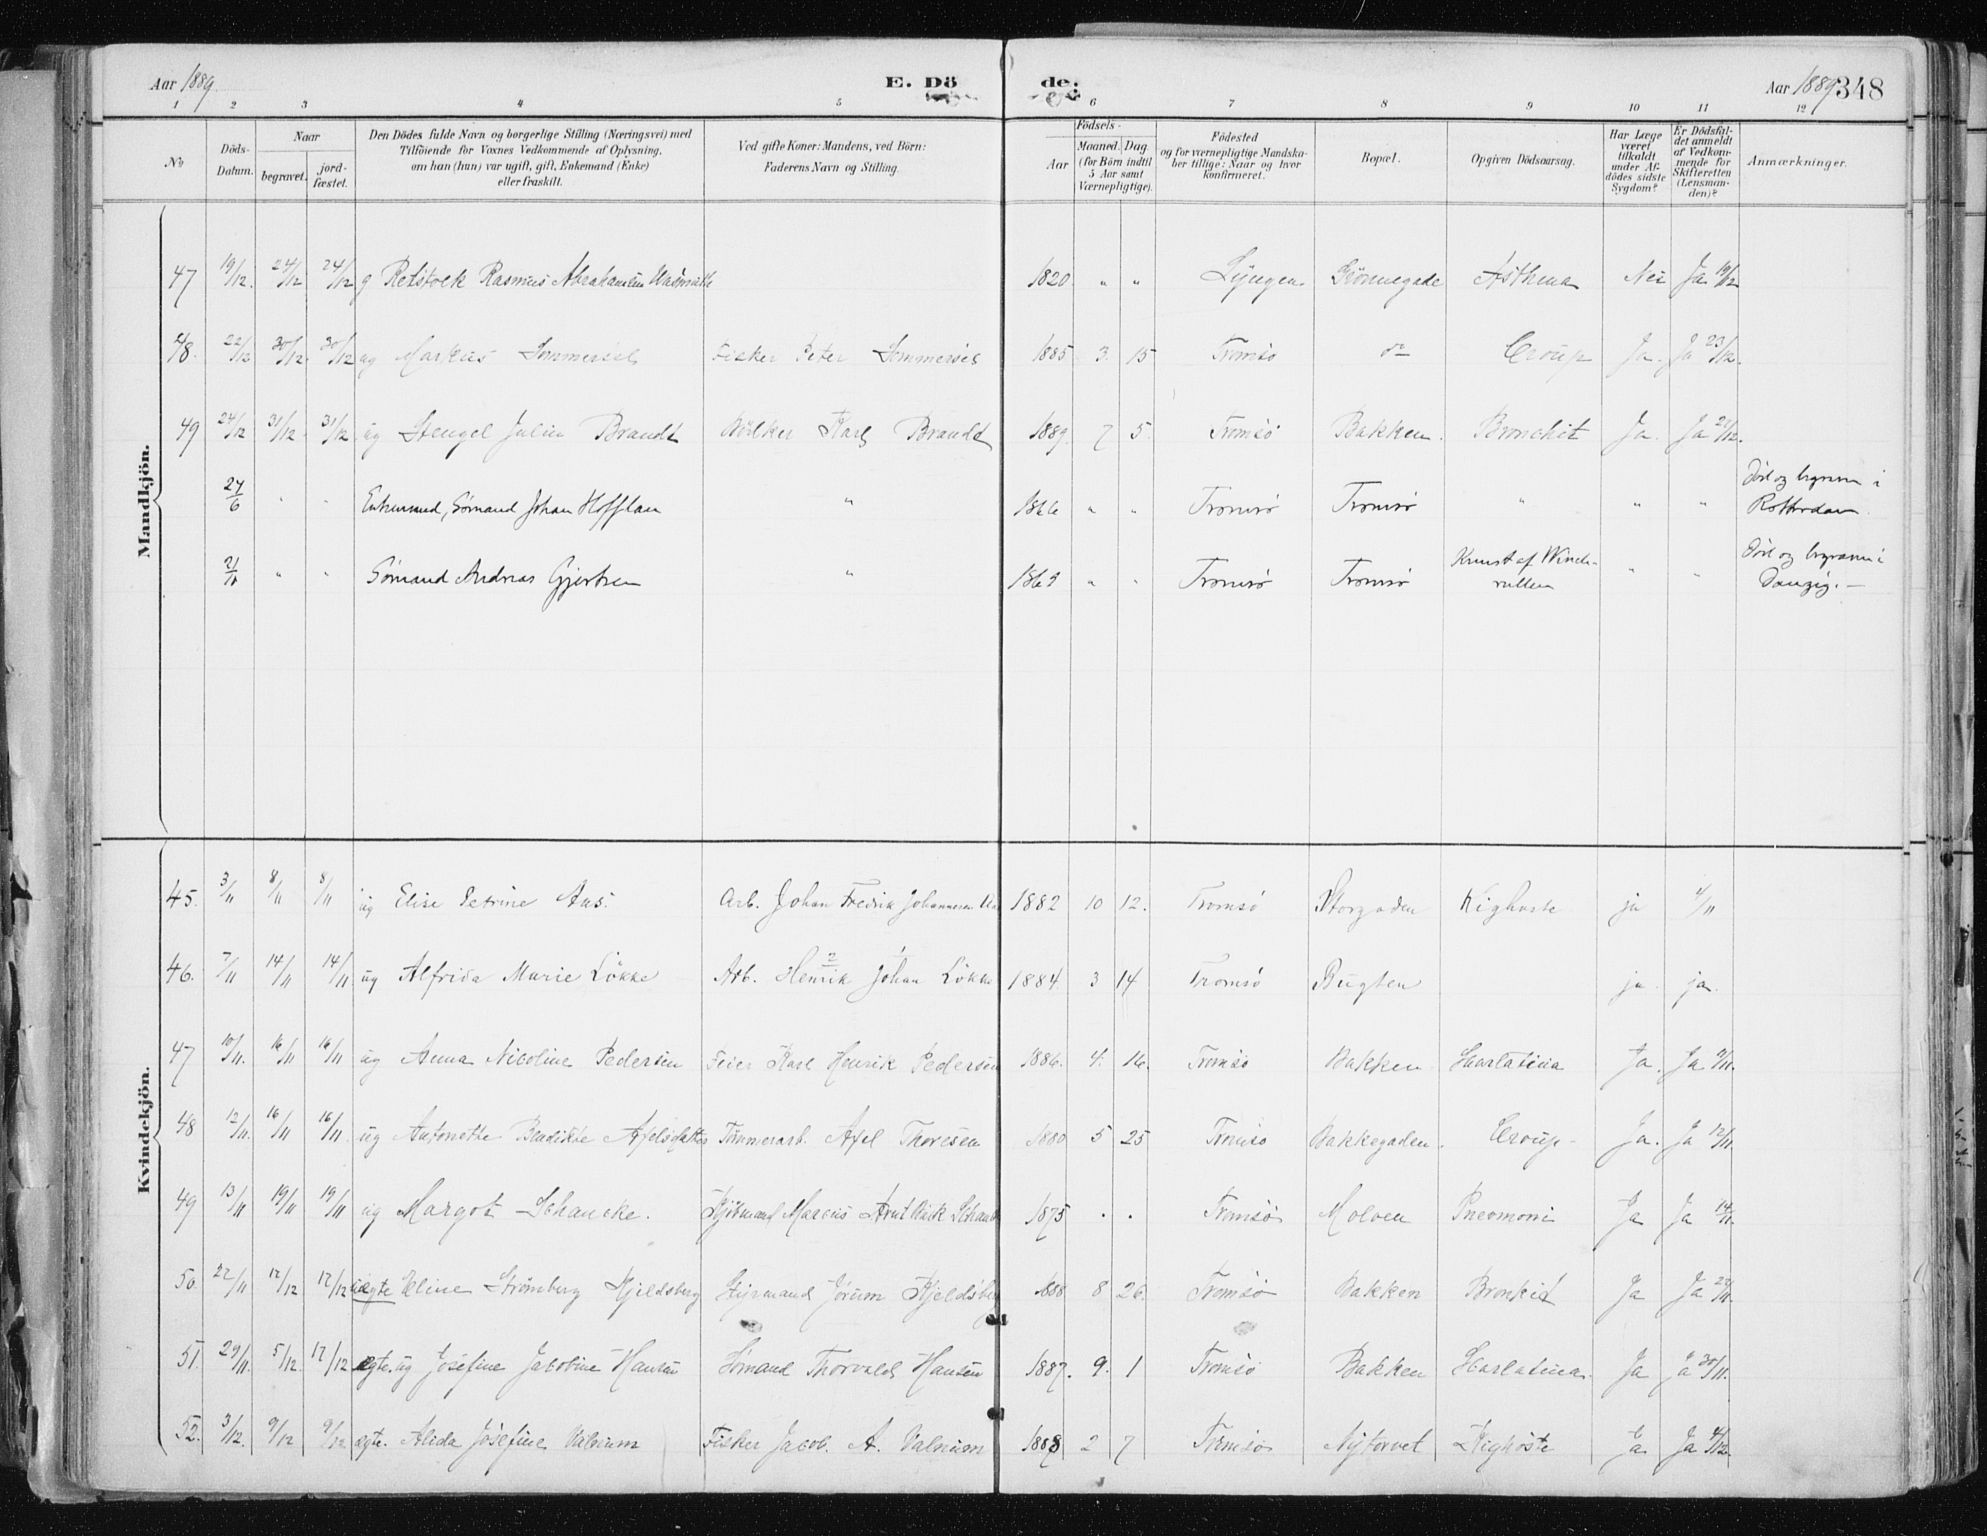 Aar 1889. E. Dö de. Aar 1889 348
1 2 3 4 5 6 7 8 9 10 11 12
No
Döds-
Datum.
Naar
begravet.
jord-
fæstet.
Den Dödes fulde Navn og borgerlige Stilling (Næringsvei) med
Tilföiende for Voxnes Vedkommende af Oplysning,
om han (hun) var ugift, gift, Enkemand (Enke)
eller fraskilt.
Ved gifte Koner: Mandens, ved Börn:
Faderens Navn og Stilling.
Födsels-
Aar
Maaned. Dag
(for Börn indtil
5 Aar samt
Værnepligtige).
Födested
og for værnepligtige Mandska-
ber tillige: Naar og hvor
konfirmeret.
Bopæl.
Opgiven Dödsaarsag.
Har Læge
været
tilkaldt
under Af-
dödes sidste
Sygdom?
Er Dödsfal-
det anmeldt
af Vedkom-
mende for
Skifteretten
(Lensman-
den)?
Anmærkninger.
Mandkjön.
47 19/12. 24/12 24/12 g Rasmus Abrahamsen 1820 " " Lyngen Grönnegade Asthma Nei Ja 19/12
48. 22/12 30/12. 30/12 ug Markus Sommersel Fisker Peter Sommersel 1885 3. 15 Tromsö do Croup Ja. Ja 23/12.
49 24/12 31/12. 31/12 ug Stengel Julius Brandt Karl Brandt 1889. 7 5. Tromsö Bakken. Bronchit Ja. Ja 27/12.
27/6 " " Enkemand, Sömand Johan Hofflan " 1846 " " Tromsö Tromsö " " " Död og begraven i
Rotterdam.
2/11 " " Sömand Andreas Gjertsen " 1863 " " Tromsö Tromsö Knust af Winde-
rullen " " Död og begraven i
Danzig. —
Kvindekjön.
45. 3/11 8/11 8/11 ug Elise Petrine Aas. Arb. Johan Fredrik Johannesen Aas 1882 10 12. Tromsö Storgaden Kighoste ja 4/11
46. 7/11 14/11 14/11 ug Alfrida Marie Lökke Arb. Henrik Johan Lökke 1884. 3 14 Tromsö Bugten ja. ja.
47 10/11. 16/11 16/11 ug Anna Nicoline Pedersen Feier Karl Henrik Pedersen 1886. 4. 16. Tromsö Bakken Scarlatina Ja. Ja 9/11.
48 12/11. 16/11 16/11. ug Antonette Bendikte Axelsdatter Tömmerarb. Axel Thoresen 1880 5 25 Tromsö Bakkegaden. Croup Ja. Ja 12/11.
49 13/11 19/11 19/11 ug Margot Schancke. Marcus Schancke 1875 . . Tromsö Molven Pneumoni Ja Ja 14/11.
50. 22/11 12/12 12/12 uægte Eline Strömberg Kjeldsberg Styrmand Jörum Kjeldsberg 1888 8 26. Tromsö Bakken Bronkit Ja Ja 22/11.
51. 29/11. 5/12. 12/12 ægte. ug Josefine Jacobine Hansen Sömand Thorvald Hansen 1887. 9. 1 Tromsö Bakken Scarlatina. Ja ja 30/11.
52. 3/12. 9/12 9/12 ægte. Alida Josefine Valnum Fisker Jacob. A. Valnum 1888 2 7 Tromsö Nytorvet Kighoste Ja Ja 4/12.